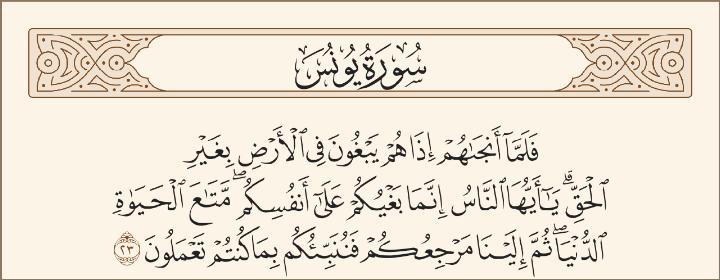 سُورَةُ يُونُسَ
فَلَمَّآ أَنجَىٰهُمْ إِذَا هُمْ يَبْغُونَ فِى ٱلْأَرْضِ بِغَيْرِ
ٱلْحَقِّ ۗ يَـٰٓأَيُّهَا ٱلنَّاسُ إِنَّمَا بَغْيُكُمْ عَلَىٰٓ أَنفُسِكُم ۖ مَّتَـٰعَ ٱلْحَيَوٰةِ
ٱلدُّنْيَا ۖ ثُمَّ إِلَيْنَا مَرْجِعُكُمْ فَنُنَبِّئُكُم بِمَا كُنتُمْ تَعْمَلُونَ ٢٣